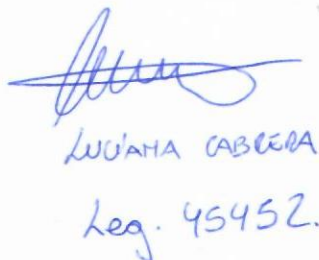 LUCIANA CABRERA
Leg. 45452.